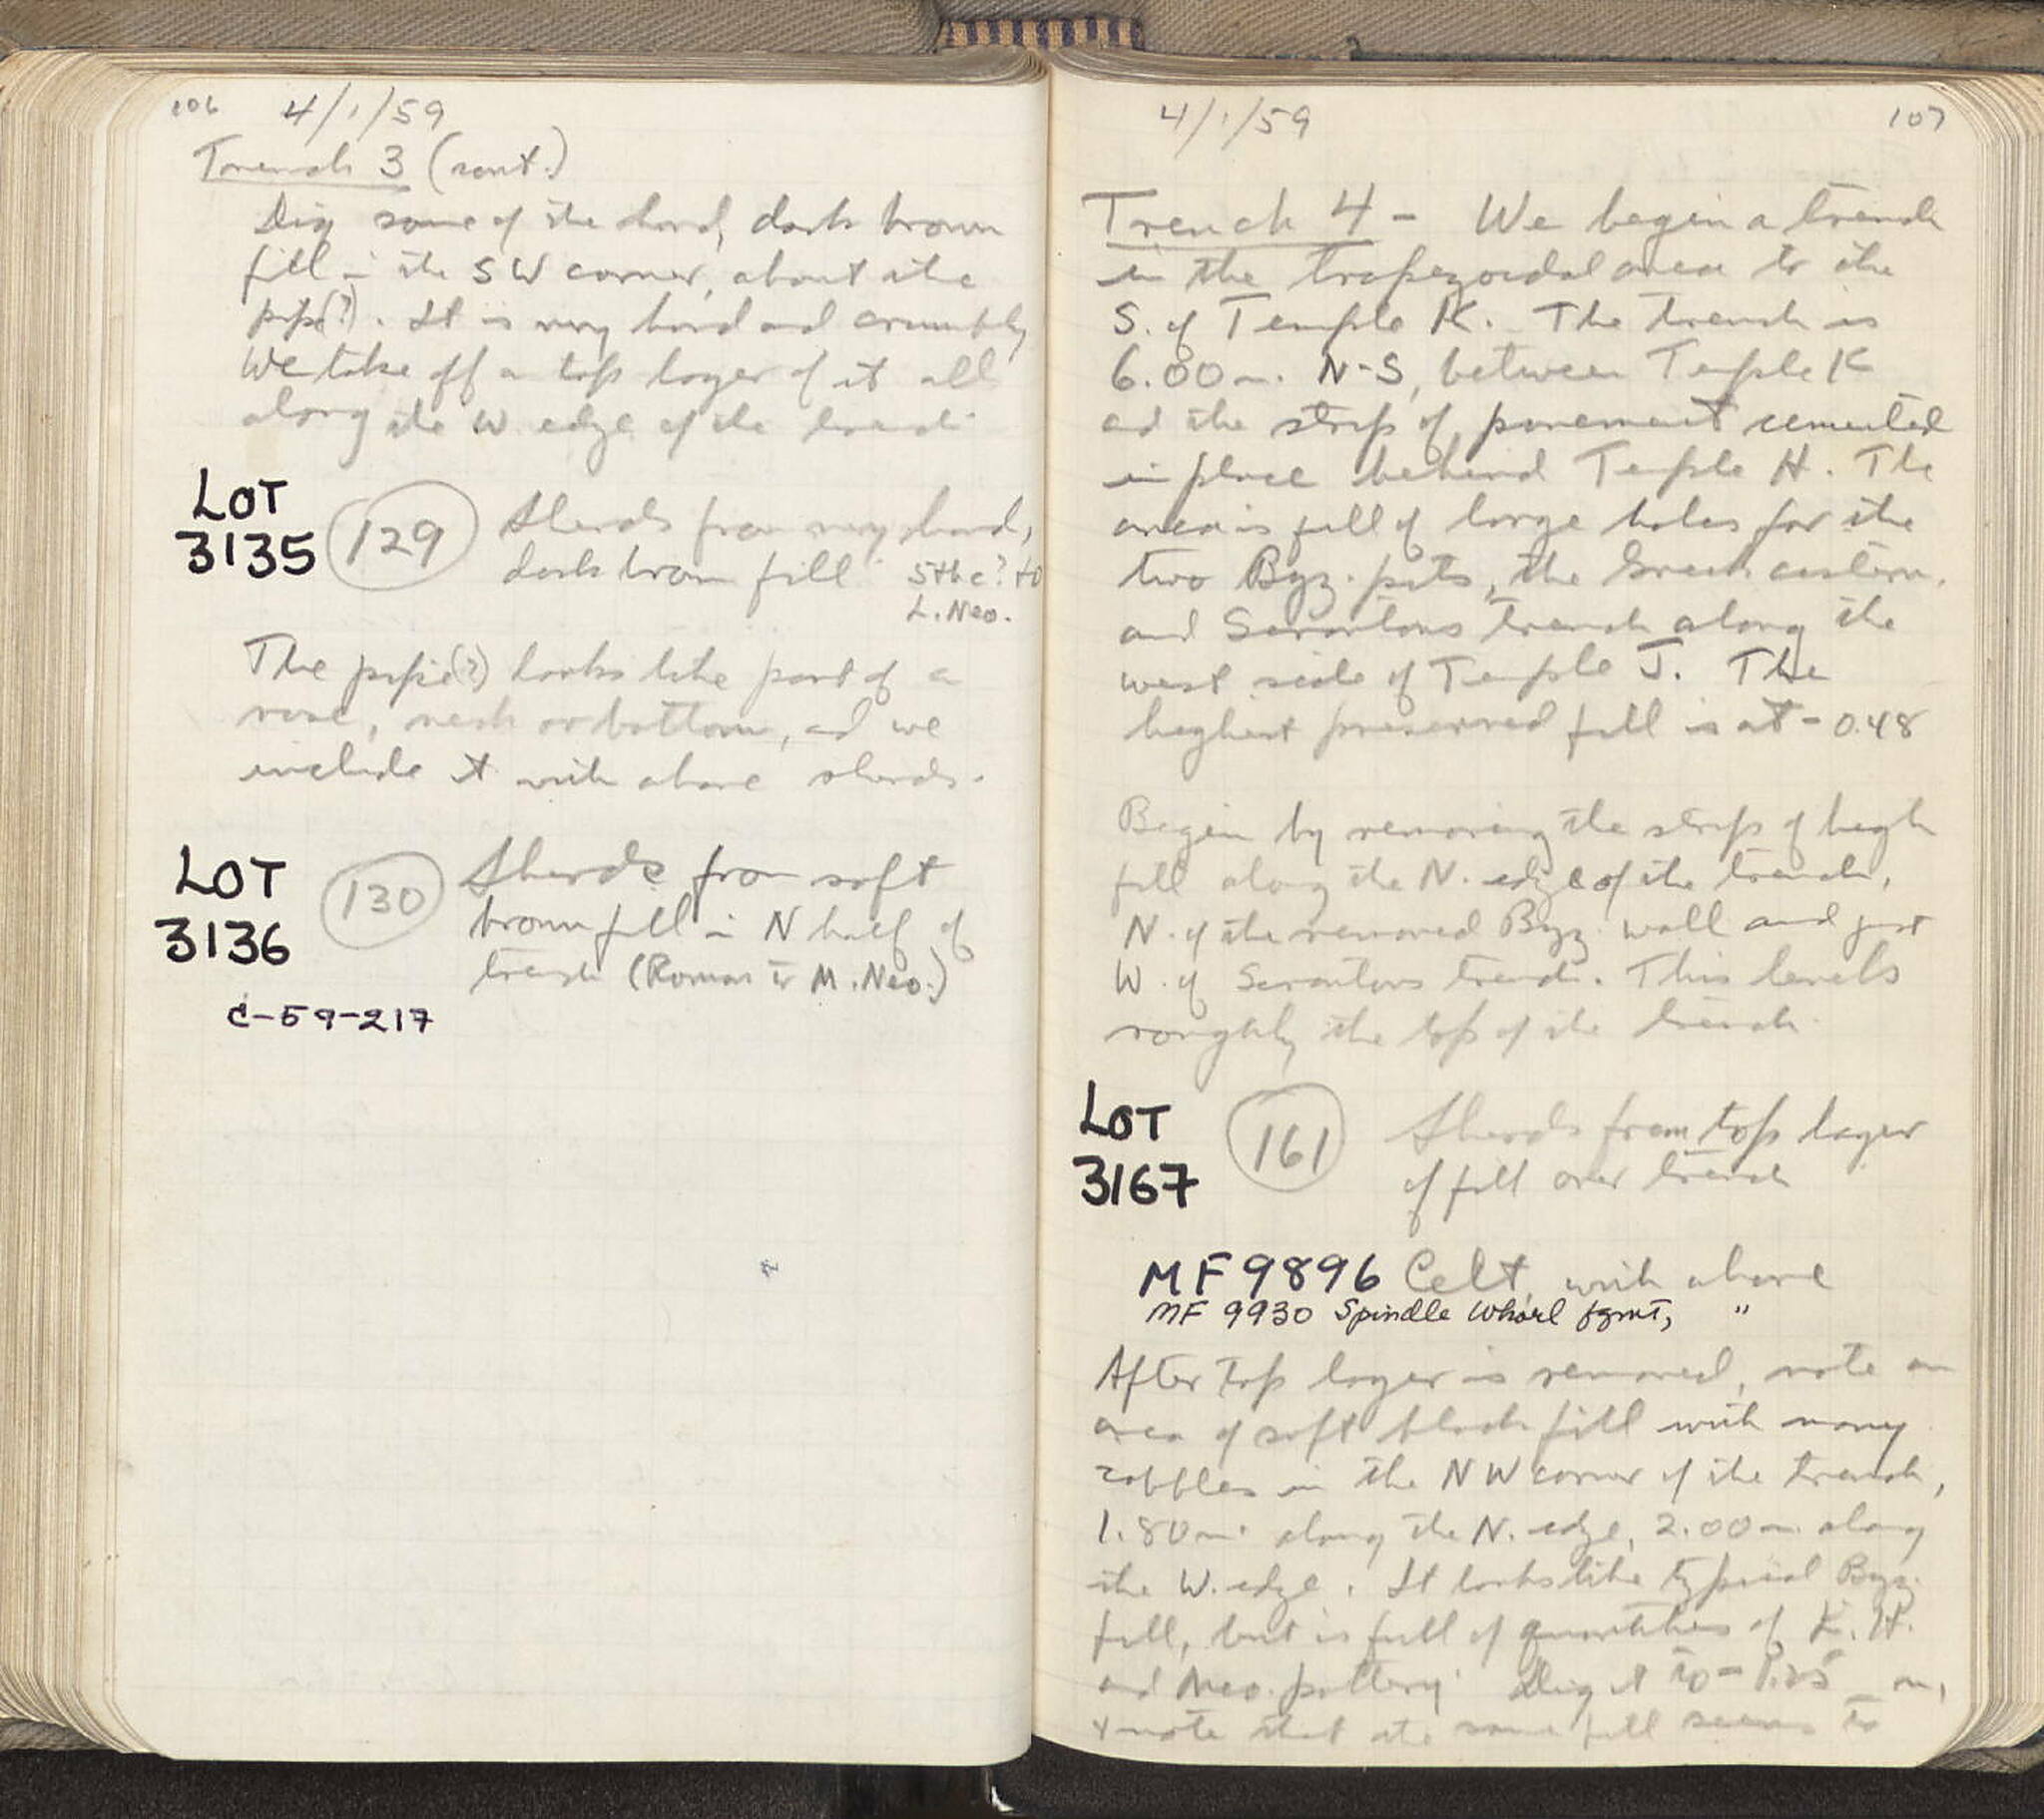 106 4/1/59
Trench 3 (cont.)
Dig some of the hard, dark brown
fill in the SW corner, about the
pipe(?). It is very hard and crumbly
We take off a top layer of it all
along the W. edge of the trench.
LOT
3135
129 Sherds from very hard,
dark brown fill 5th c? to
L. Neo.
The pipe(?) looks like part of a
vase, neck or bottom, and we
include it with above sherds.
LOT
3136
130 Sherds from soft
brown fill in N half of
trench (Roman to M. Neo.)
C-59-217
4/1/59 107
Trench 4 - We begin a trench
in the trapezoidal area to the
S. of Temple K. The trench is
6.00 m. N-S, between Temple K
and the strip of pavement cemented
in place behind Temple H. The
area is full of large holes for the
two Byz. pits, the Greek cistern,
and Scranton's trench along the
west side of Temple J. The
highest preserved fill is at - 0.48
Begin by removing the strip of high
fill along the N. edge of the trench,
N. of the removed Byz. wall and just
W. of Scranton's trench. This levels
roughly the top of the trench.
LOT
3167
161 Sherds from top layer
of fill over trench
MF 9896 Celt, with above
MF 9930 Spindle Whorl fgmt, "
After top layer is removed, note an
area of soft black fill with many
cobbles in the NW corner of the trench,
1.80 m. along the N. edge, 2.00 m. along
the W. edge. It looks like typical Byz.
fill, but is full of quantities of E. H.
and Neo. pottery. Dig it to - m,
+ note that the same fill seems to